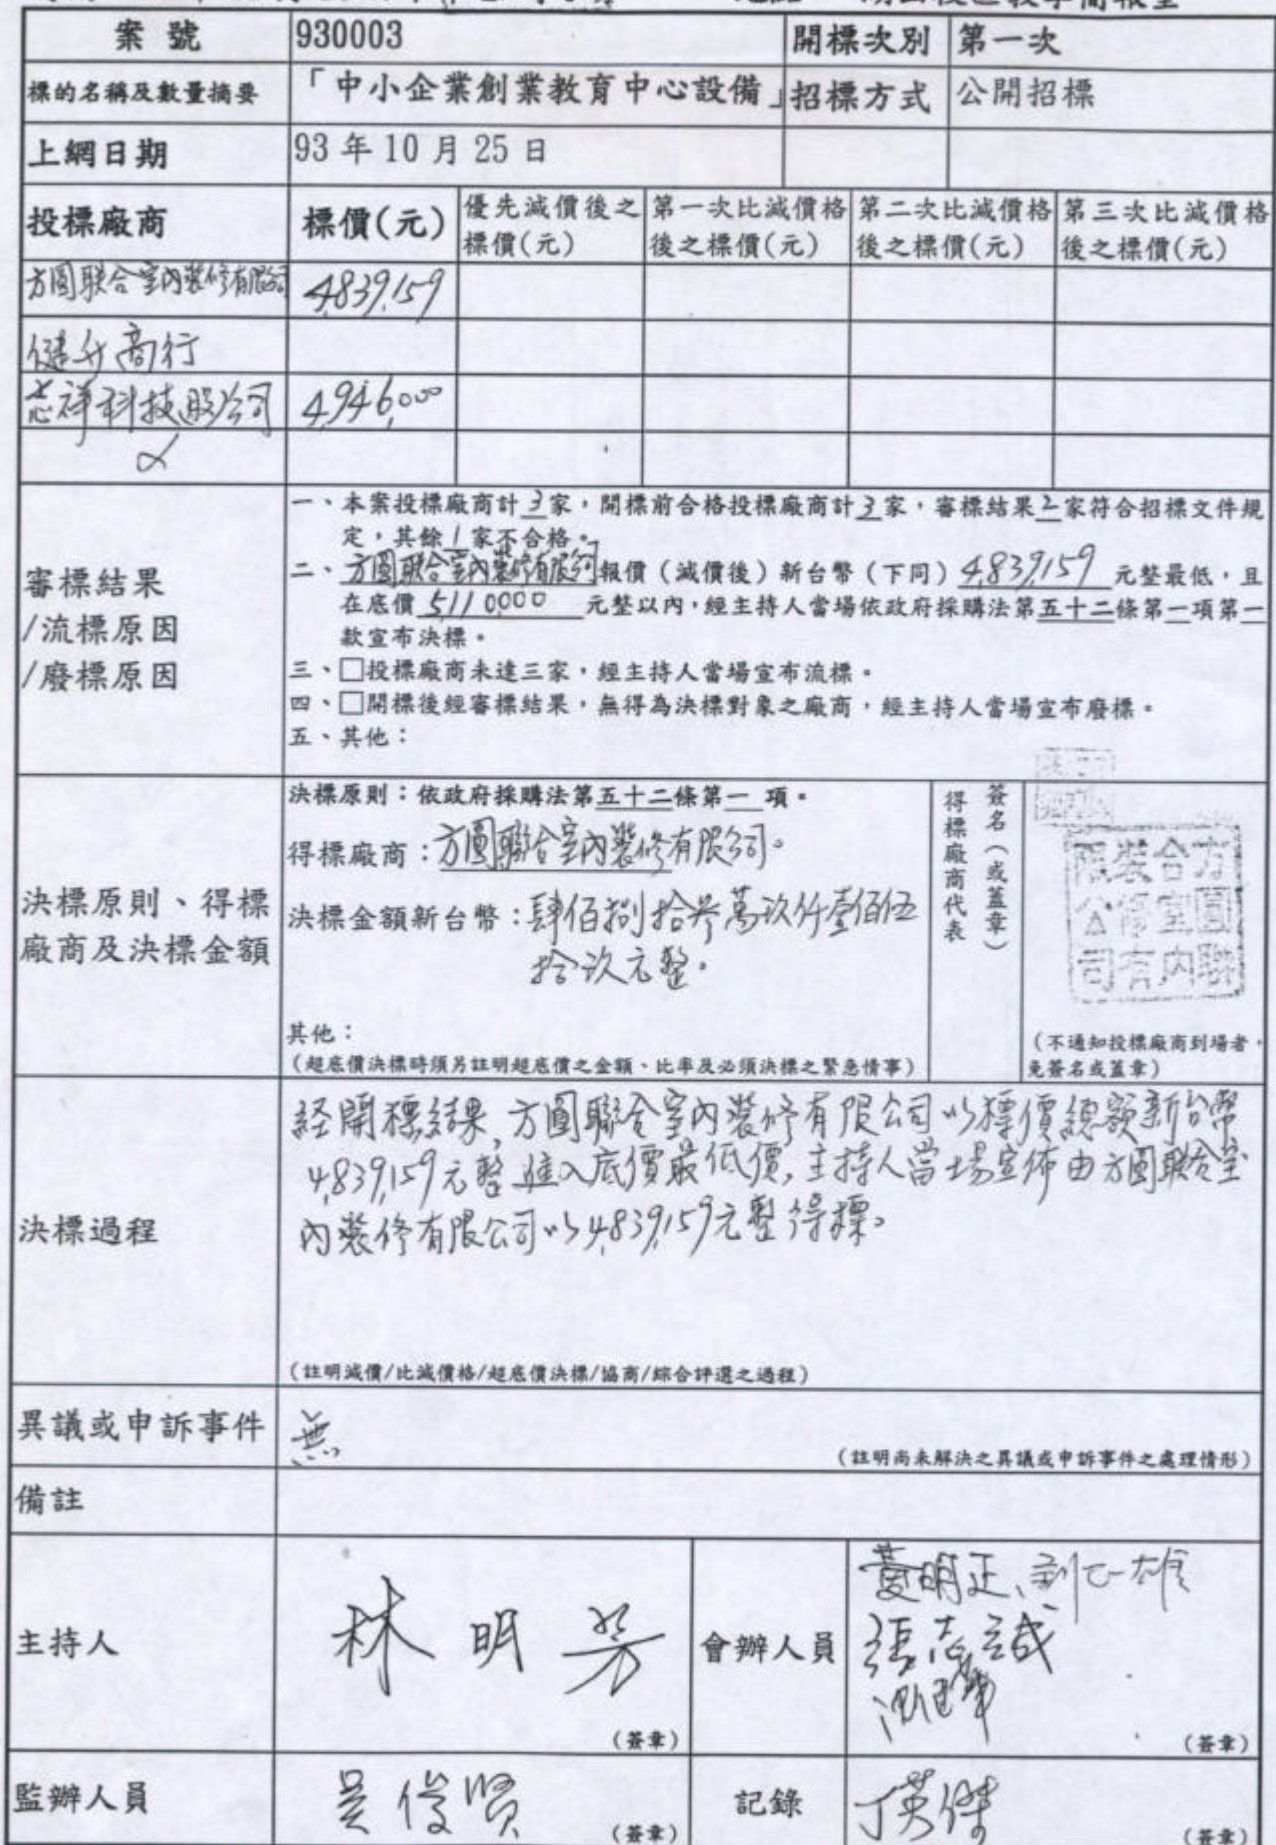 案號 930003 開標次別 第一次
標的名稱及數量摘要 「中小企業創業教育中心設備」 招標方式 公開招標
上網日期 93 年 10 月 25 日
投標廠商 標價(元) 優先減價後之標價(元) 第一次比減價格後之標價(元) 第二次比減價格後之標價(元) 第三次比減價格後之標價(元)
方圓聯合室內裝修有限公司 4,839,159
健升商行
志祥科技股公司 4,946,000
審標結果
/流標原因
/廢標原因
一、本案投標廠商計3家，開標前合格投標廠商計3家，審標結果2家符合招標文件規
定，其餘1家不合格。
二、方圓聯合室內裝修有限公司報價（減價後）新台幣（下同）4,839,159元整最低，且
在底價5110000元整以內，經主持人當場依政府採購法第五十二條第一項第一
款宣布決標。
三、□投標廠商未達三家，經主持人當場宣布流標。
四、□開標後經審標結果，無得為決標對象之廠商，經主持人當場宣布廢標。
五、其他：
決標原則、得標
廠商及決標金額
決標原則：依政府採購法第五十二條第一項。
得標廠商：方圓聯合室內裝修有限公司。
決標金額新台幣：肆佰捌拾參萬玖仟壹佰伍
拾玖元整。
其他：
（超底價決標時須另註明超底價之金額、比率及必須決標之緊急情事）
得標廠商代表
簽名（或蓋章）
方圓聯
合室內
裝修有
限公司
（不通知投標廠商到場者，
免簽名或蓋章）
決標過程
経開標結果,方圓聯合室內裝修有限公司以標價總額新台幣
4,839,159元整進入底價最低價,主持人當場宣佈由方圓聯合室
內裝修有限公司以4,839,159元整得標。
（註明減價/比減價格/超底價決標/協商/綜合評選之過程）
異議或申訴事件 無 （註明尚未解決之異議或申訴事件之處理情形）
備註
主持人 林明芳 （簽章）
會辦人員 張志誠 （簽章）
監辦人員 吳俊賢 （簽章）
記錄 丁英傑 （簽章）